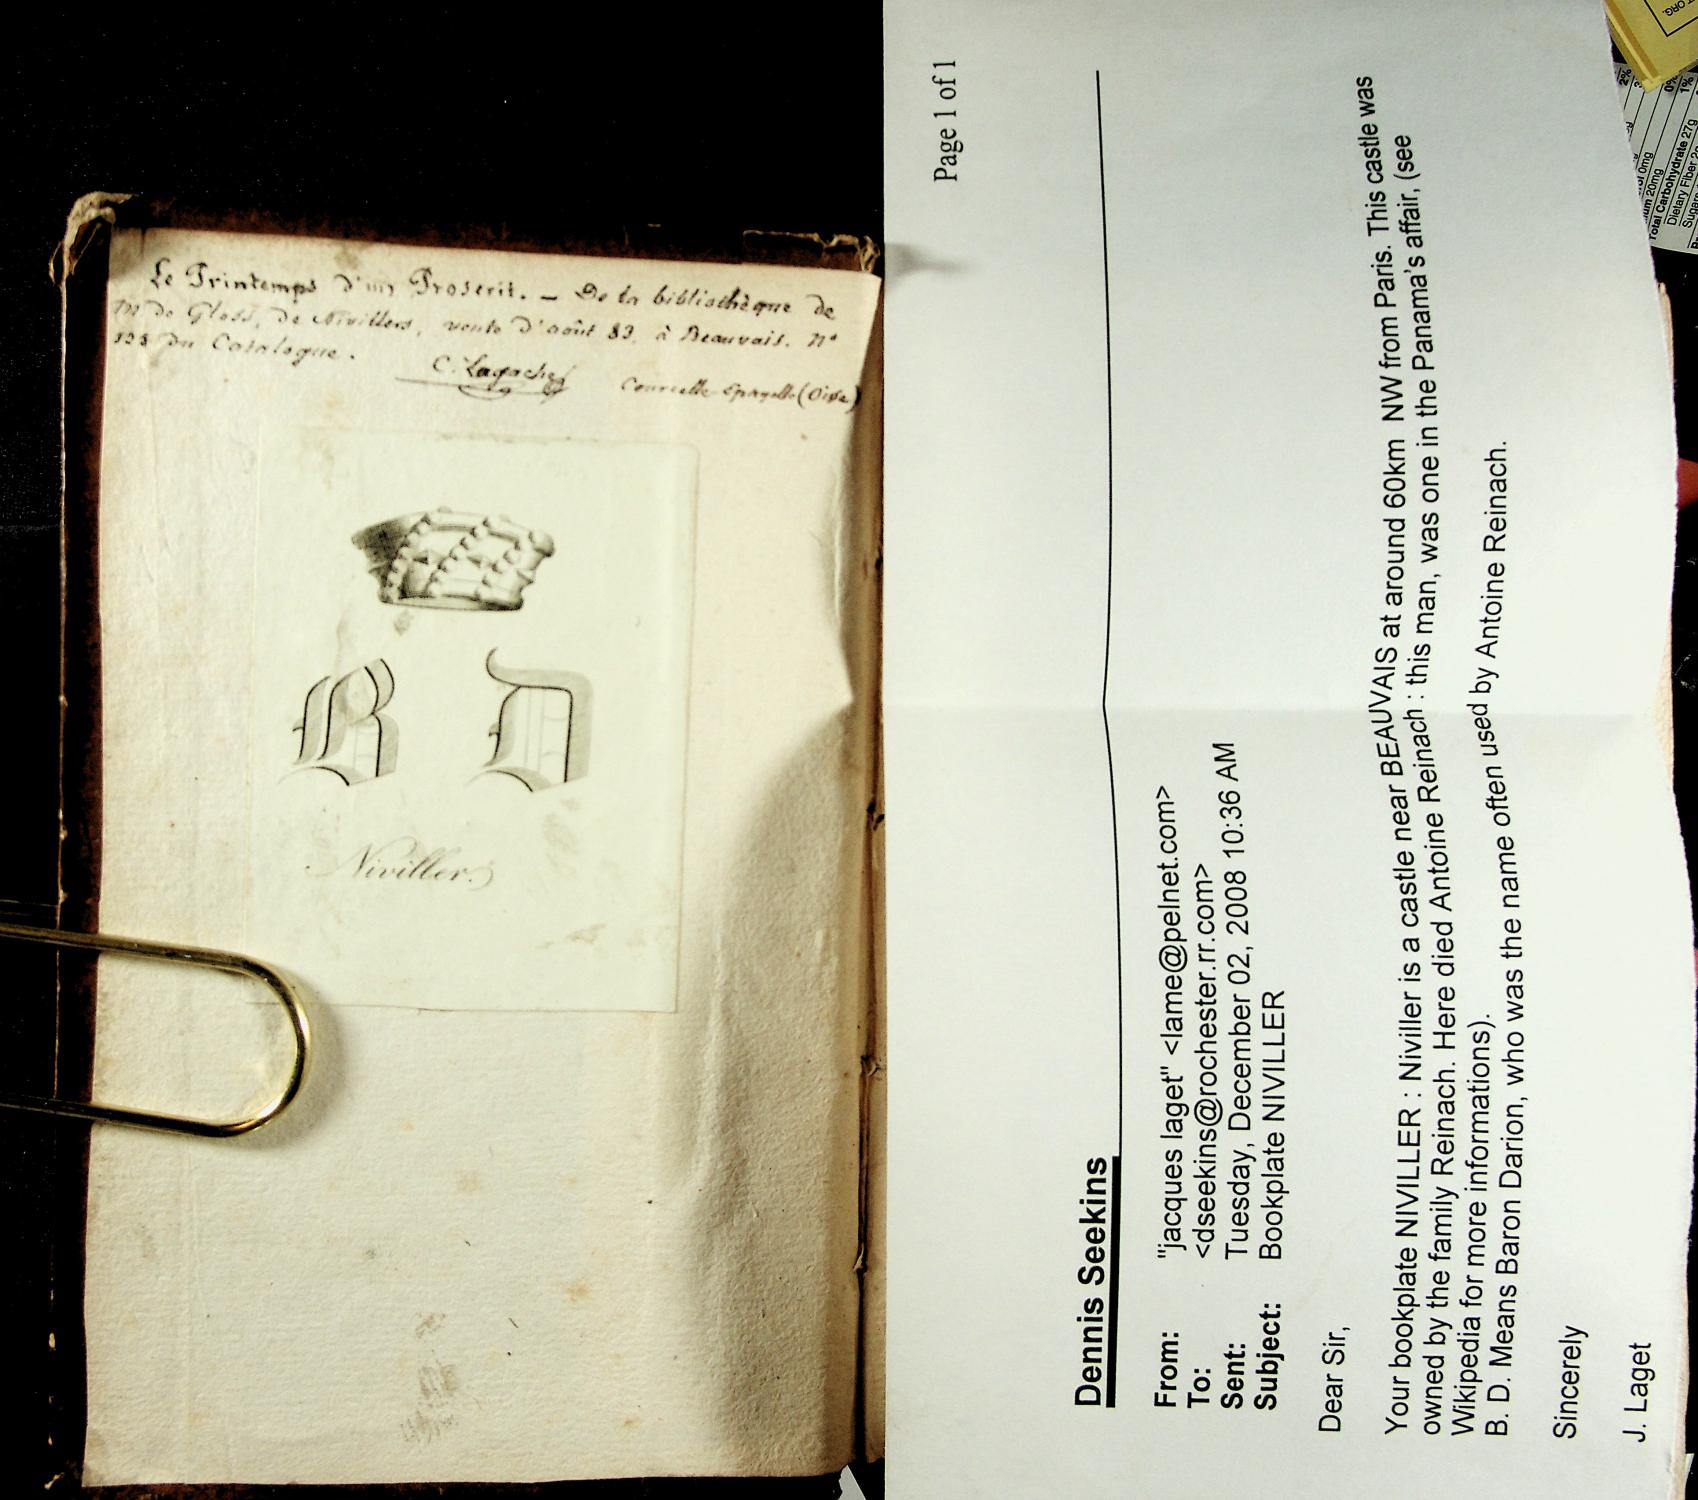 Le Printemps d'un Proscrit. – De la bibliothèque de
M de Gloss, de Nivillers, vente d'août 83, à Beauvais. N°
128 du Catalogue.
C. Lagache
Courcelle Epayelle (Oise)
B D
Niviller.
Page 1 of 1
Dennis Seekins
From: "jacques laget" <lame@pelnet.com>
To: <dseekins@rochester.rr.com>
Sent: Tuesday, December 02, 2008 10:36 AM
Subject: Bookplate NIVILLER
Dear Sir,
Your bookplate NIVILLER : Niviller is a castle near BEAUVAIS at around 60km NW from Paris. This castle was
owned by the family Reinach. Here died Antoine Reinach : this man, was one in the Panama's affair, (see
Wikipedia for more informations).
B. D. Means Baron Darion, who was the name often used by Antoine Reinach.
Sincerely
J. Laget
ORG.
2%
0%
1%
0mg
20mg
Total Carbohydrate 27g
Dietary Fiber
Sugars